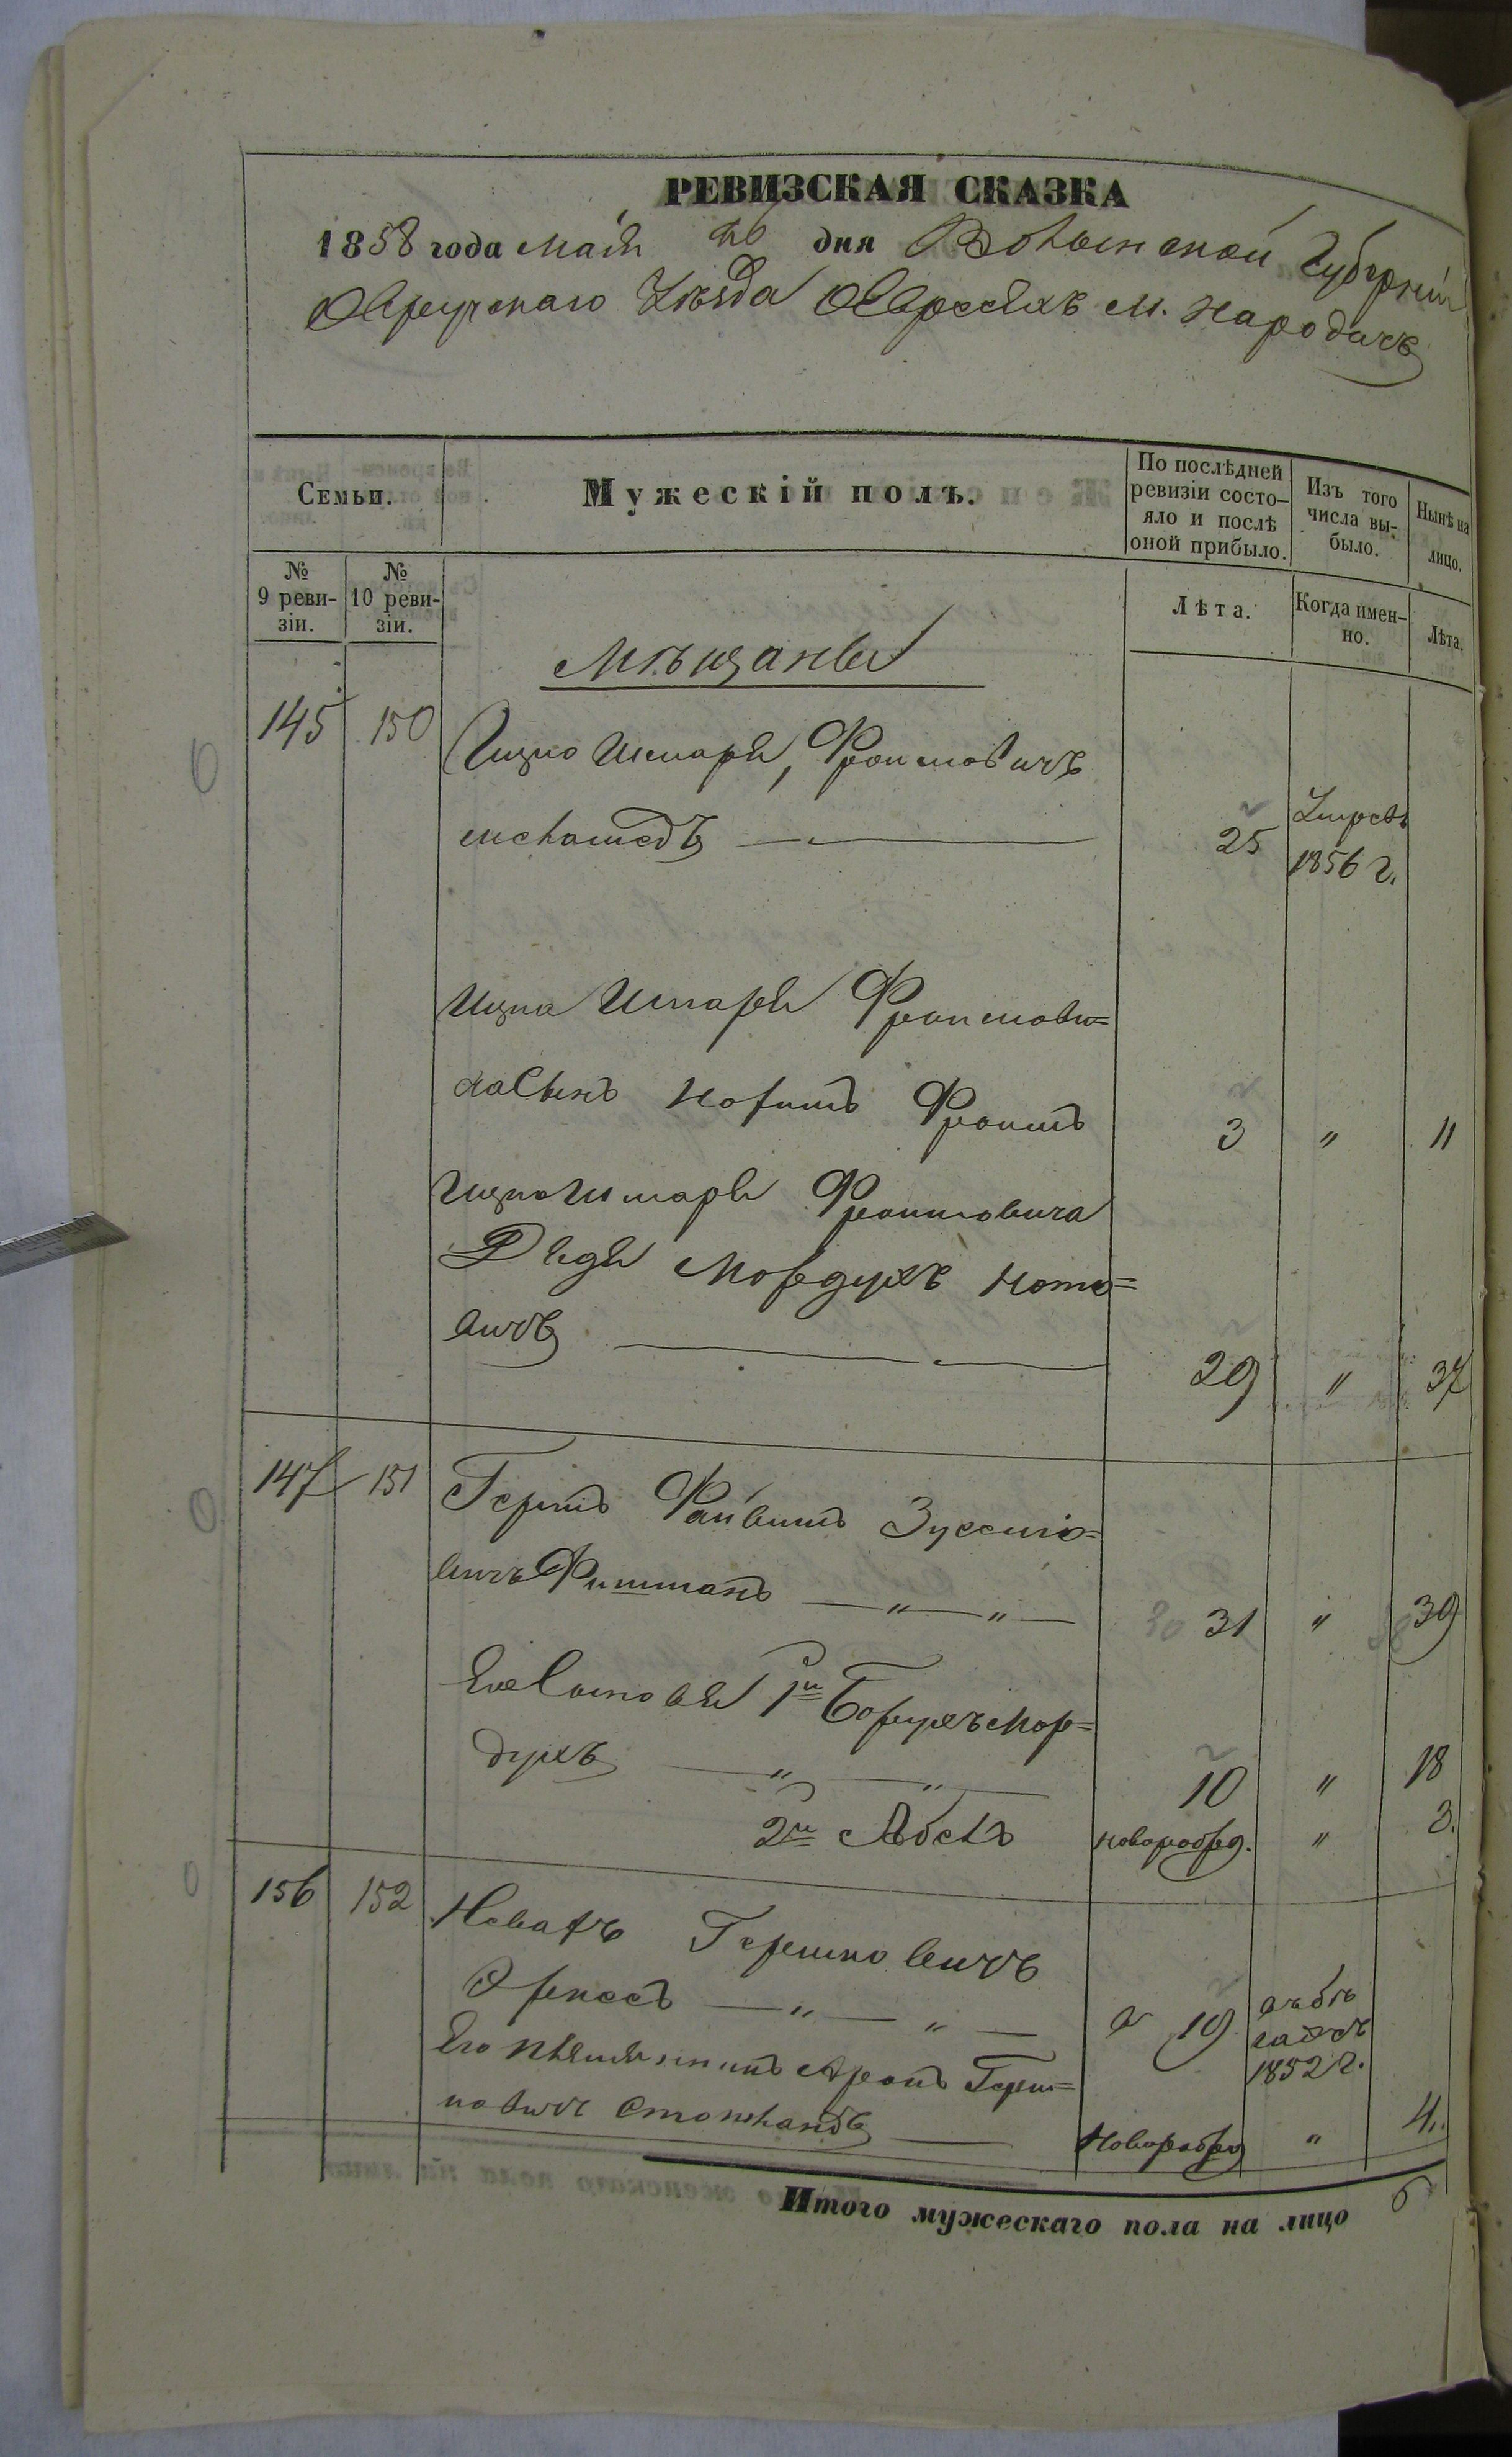 РЕВИЗСКАЯ СКАЗКА
1858 года Мая 26 дня Волынской Губерніи
Овручскаго Уѣзда о Евреяхъ м. Народичъ
Семьи.
Мужескій полъ.
По послѣдней ревизіи состо-яло и послѣ оной прибыло.
Изъ того числа вы-было.
Нынѣ на лицо.
№ 9 реви-зіи.
№ 10 реви-зіи.
Лѣта.
Когда имен-но.
Лѣта.
Мѣщане
145 150 Ицко Шмаря, Фроимовичъ
25 Умревъ 1856 г.
Ицка Шмаря Фроимови=
ча Сынъ Нохимъ Фроимъ 3 " 11
Ицко Шмаря Фроимовича
Дядя Мордухъ Ното=
вичъ 29 " 37
147 151 Гершъ Файвишъ Зуссио=
вичъ Фишманъ — " — " — 31 " 39
Его Сыновья 1й Борухъ Мор=
духъ — " — " — 10 " 18
2й Абель новорожд. " 3.
156 152 Новахъ Гершковичъ
— " — " — 19 въ бѣгахъ съ 1852 г.
Его племянникъ Аронъ Герш=
ковичъ новорожд " 4.
Итого мужескаго пола на лицо 6